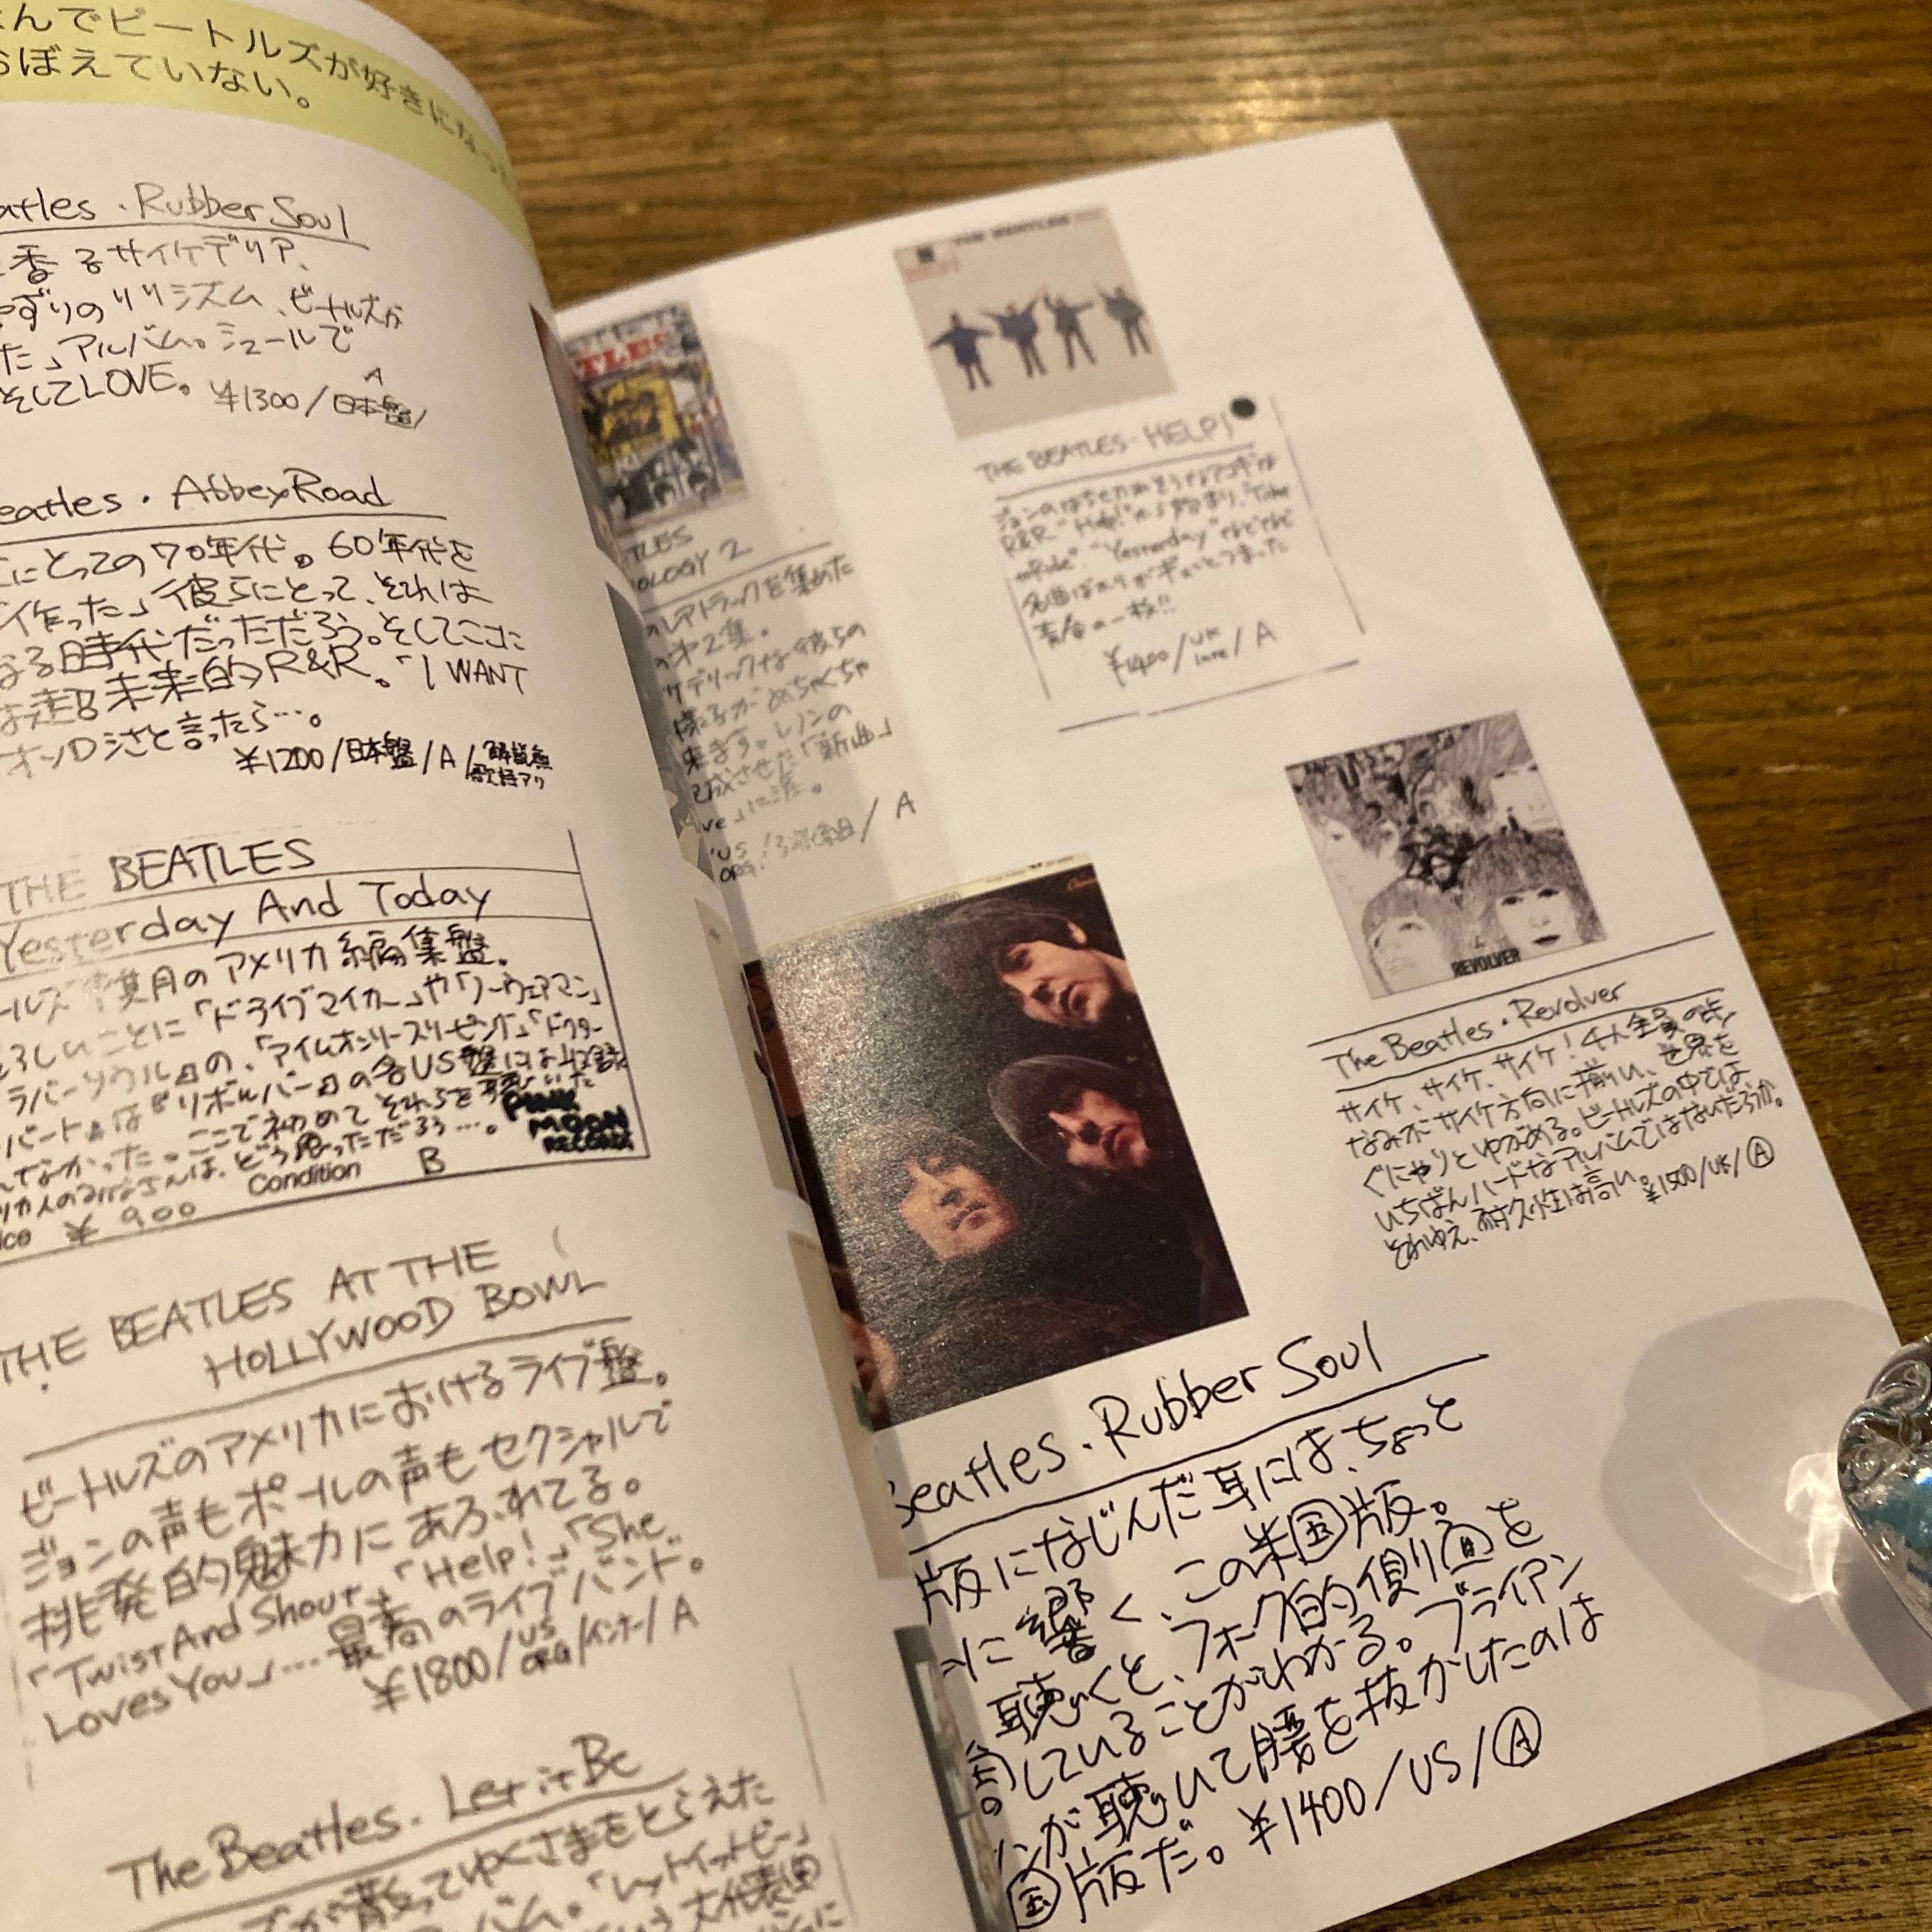 んでビートルズが好きになっ
おぼえていない。
atles・Rubber Soul
香るサイケデリア、
ずりのリリシズム、ビートルズが
た」アルバム。シュールで
そしてLOVE。 ¥1300/日本盤/
A
eatles・Abbey Road
にとっての70年代。60年代を
作った」彼らにとって、それは
なる時代だっただろう。そしてここに
は超未来的R&R。「I WANT
オソロシさと言ったら…。
¥1200/日本盤/A/解説無
歌詞アリ
THE BEATLES
Yesterday And Today
ールズ 月のアメリカ編集盤。
ろしいことに「ドライブマイカー」や「ノーウェアマン」
ラバーソウル』の、「アイムオンリースリーピング」「ドクター
バート』は『リボルバー』の各US盤には収録
てなかった。ここで初めてそれらを聴いた
リカ人のみなさんは、どう思っただろう…。
PINK
MOON
RECORDS
Condition B
ice ¥ 900
THE BEATLES AT THE
HOLLYWOOD BOWL
ビートルズのアメリカにおけるライブ盤。
ジョンの声もポールの声もセクシャルで
挑発的魅力にあふれてる。
「Twist And Shout」「Help!」「She
Loves You」…最高のライブバンド。
¥1800/US
ORG/インナー/A
The Beatles. Let it Be
ズが散ってゆくさまをとらえた
バム。「レットイットビー」
大代表曲
TLES
OLOGY 2
のレアトラックを集めた
の第2集。
ケデリックな彼らの
様子がめちゃくちゃ
来ます。レノンの
成させた「新曲」
ve」
US
ORG /3枚組/A
THE BEATLES・HELP!
R&R "Help!"から始まり、"Ticket
to Ride" "Yesterday"などなど
名曲ばかりがギュッとつまった
青春の一枚!!
¥1400/UK
late/A
REVOLVER
The Beatles・Revolver
サイケ、サイケ、サイケ!4人全員の
なみがサイケ方向に揃い、世界を
ぐにゃりとゆがめる。ビートルズの中では
いちばんハードなアルバムではないだろうか。
それゆえ、耐久性は高い。¥1500/UK/Ⓐ
Beatles・Rubber Soul
版になじんだ耳には、ちょっと
に響く、この米国版。
聴くと、フォーク的側面を
していることがわかる。ブライアン
ンが聴いて腰を抜かしたのは
国版だ。¥1400/US/Ⓐ